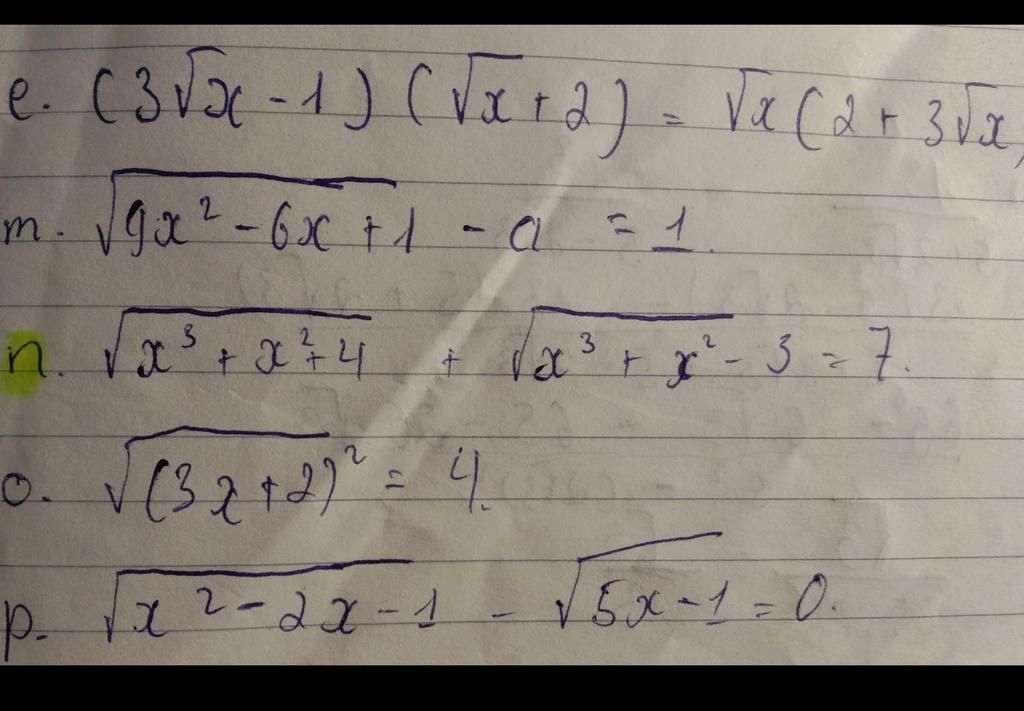 e. (3√x - 1) (√x + 2) = √x (2 + 3√x)
m. √9x² - 6x + 1 - a = 1.
n. √x³ + x² + 4 + √x³ + x² - 3 = 7.
o. √(3x + 2)² = 4.
p. √x² - 2x - 1 - √5x - 1 = 0.